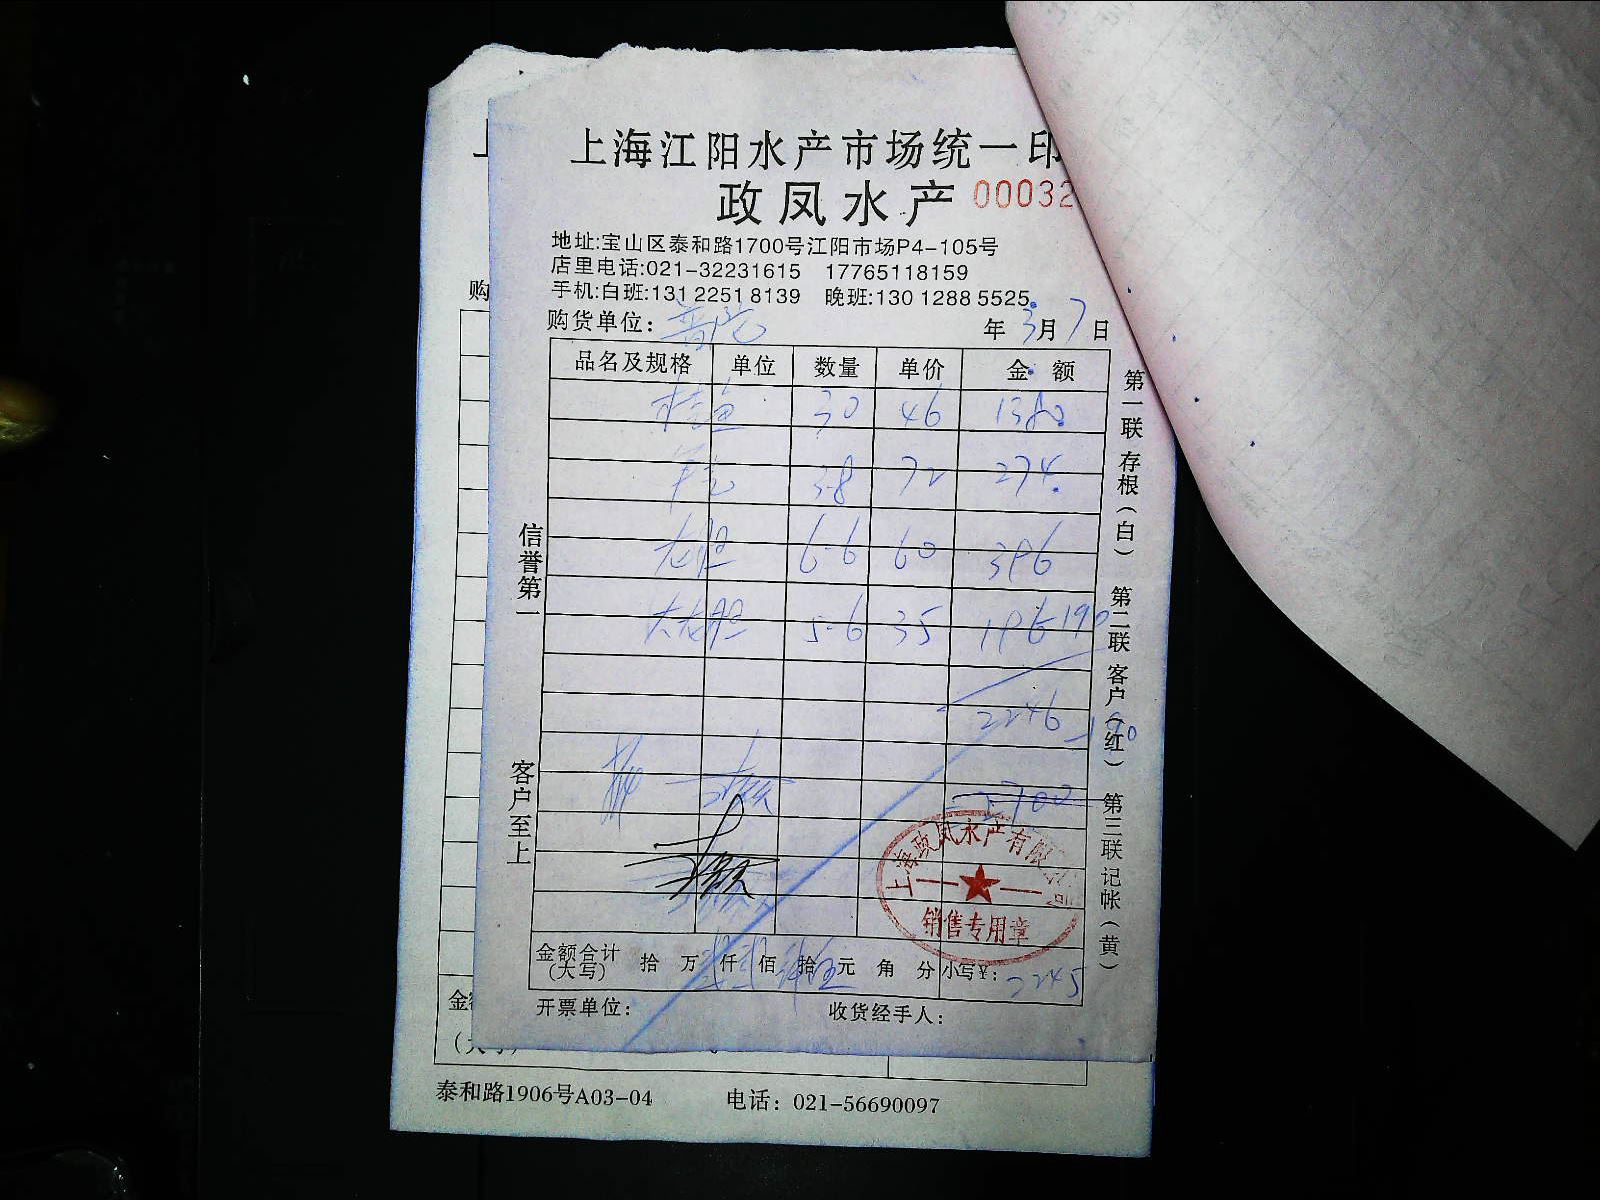 上海江阳水产市场统一印
政凤水产 00032
地址:宝山区泰和路1700号江阳市场P4-105号
店里电话:021-32231615 17765118159
手机:白班:131 2251 8139 晚班:130 1288 5525
购
购货单位: 年 3月 7日
品名及规格 单位 数量 单价 金额
桂鱼 30 46 1380
3.8 72 274.
龙胆 6.6 60 396
大龙胆 5.6 35 196 190
2246 -190
信誉第一
客户至上
第一联存根(白) 第二联客户(红) 第三联记帐(黄)
上海政凤水产有限公司
销售专用章
金额合计(大写) 拾 万 仟 佰 拾 元 角 分 小写¥: 2245
开票单位: 收货经手人:
泰和路1906号A03-04 电话: 021-56690097